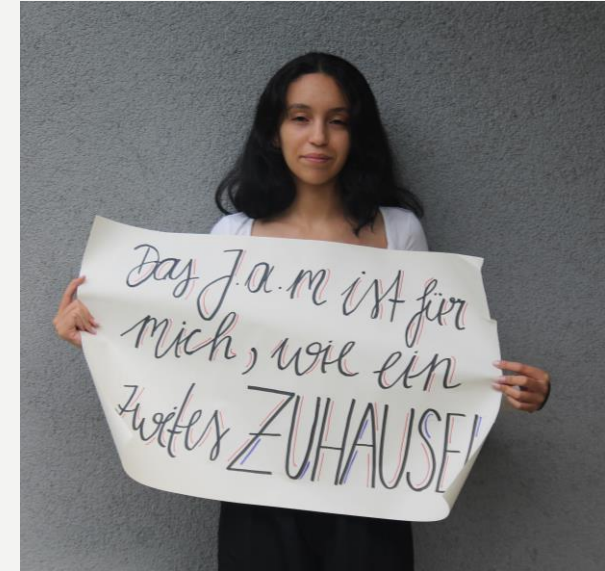 Das J.a.m ist für
mich, wie ein
zweites ZUHAUSE!